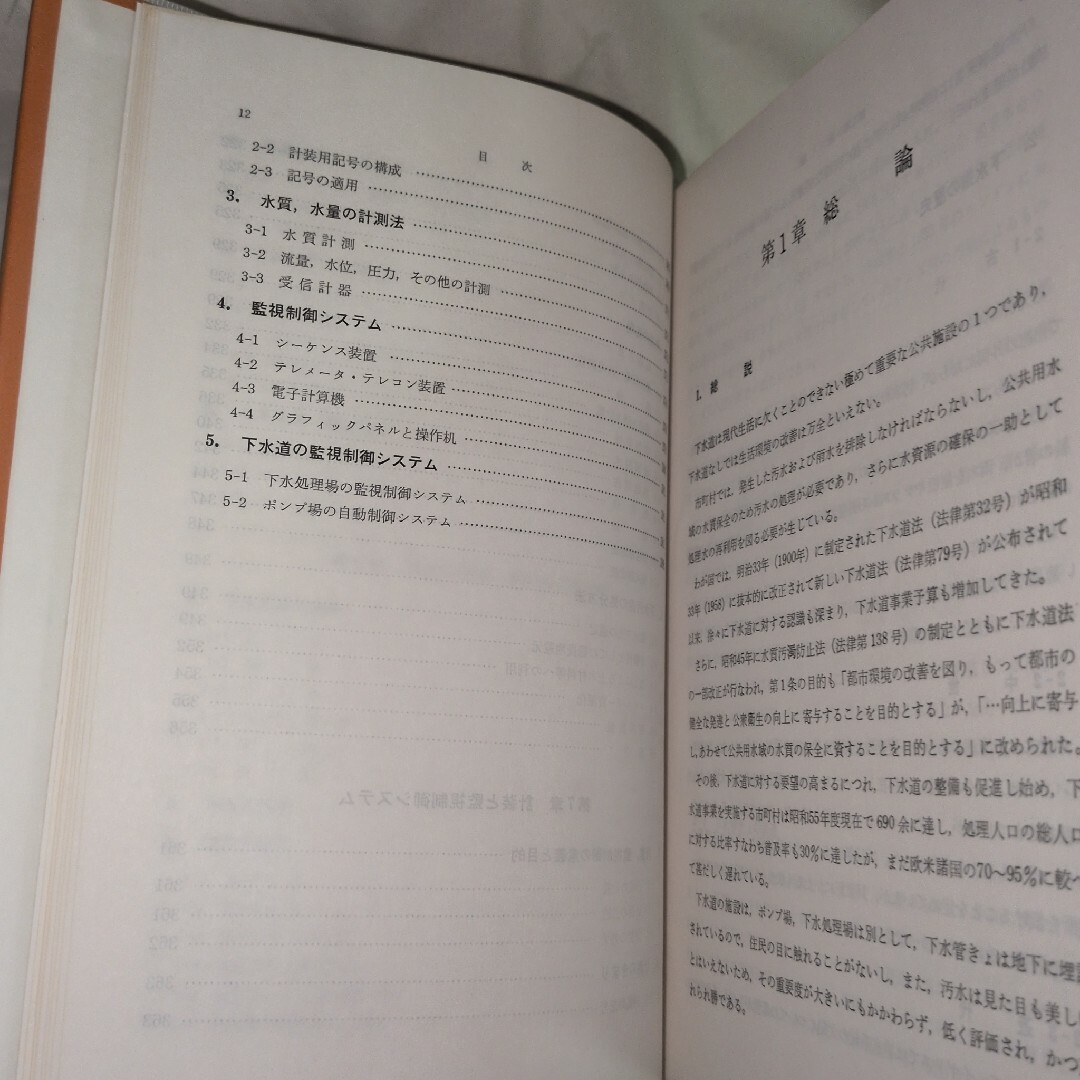 12
目 次
2-2 計装用記号の構成
2-3 記号の適用
3. 水質，水量の計測法
3-1 水質計測
3-2 流量，水位，圧力，その他の計測
3-3 受信計器
4. 監視制御システム
4-1 シーケンス装置
4-2 テレメータ・テレコン装置
4-3 電子計算機
4-4 グラフィックパネルと操作机
5. 下水道の監視制御システム
5-1 下水処理場の監視制御システム
5-2 ポンプ場の自動制御システム
第1章 総 論
1. 総 説
下水道は現代生活に欠くことのできない極めて重要な公共施設の1つであり，
下水道なしでは生活環境の改善は万全といえない。
市町村では，発生した汚水および雨水を排除しなければならないし，公共用水
域の水質保全のため汚水の処理が必要であり，さらに水資源の確保の一助として
処理水の再利用を図る必要が生じている。
わが国では，明治33年（1900年）に制定された下水道法（法律第32号）が昭和
33年（1958）に抜本的に改正されて新しい下水道法（法律第79号）が公布されて
以来，徐々に下水道に対する認識も深まり，下水道事業予算も増加してきた。
さらに，昭和45年に水質汚濁防止法（法律第138号）の制定とともに下水道法
の一部改正が行なわれ，第1条の目的も「都市環境の改善を図り，もって都市の
健全な発達と公衆衛生の向上に寄与することを目的とする」が，「…向上に寄与
し，あわせて公共用水域の水質の保全に資することを目的とする」に改められた。
その後，下水道に対する要望の高まるにつれ，下水道の整備も促進し始め，下
水道事業を実施する市町村は昭和55年度現在で690余に達し，処理人口の総人口
に対する比率すなわち普及率も30％に達したが，まだ欧米諸国の70～95％に較べ
て甚だしく遅れている。
下水道の施設は，ポンプ場，下水処理場は別として，下水管きょは地下に埋設
されているので，住民の目に触れることがないし，また，汚水は見た目も美し
とはいえないため，その重要度が大きいにもかかわらず，低く評価され，かつ
れられ勝である。